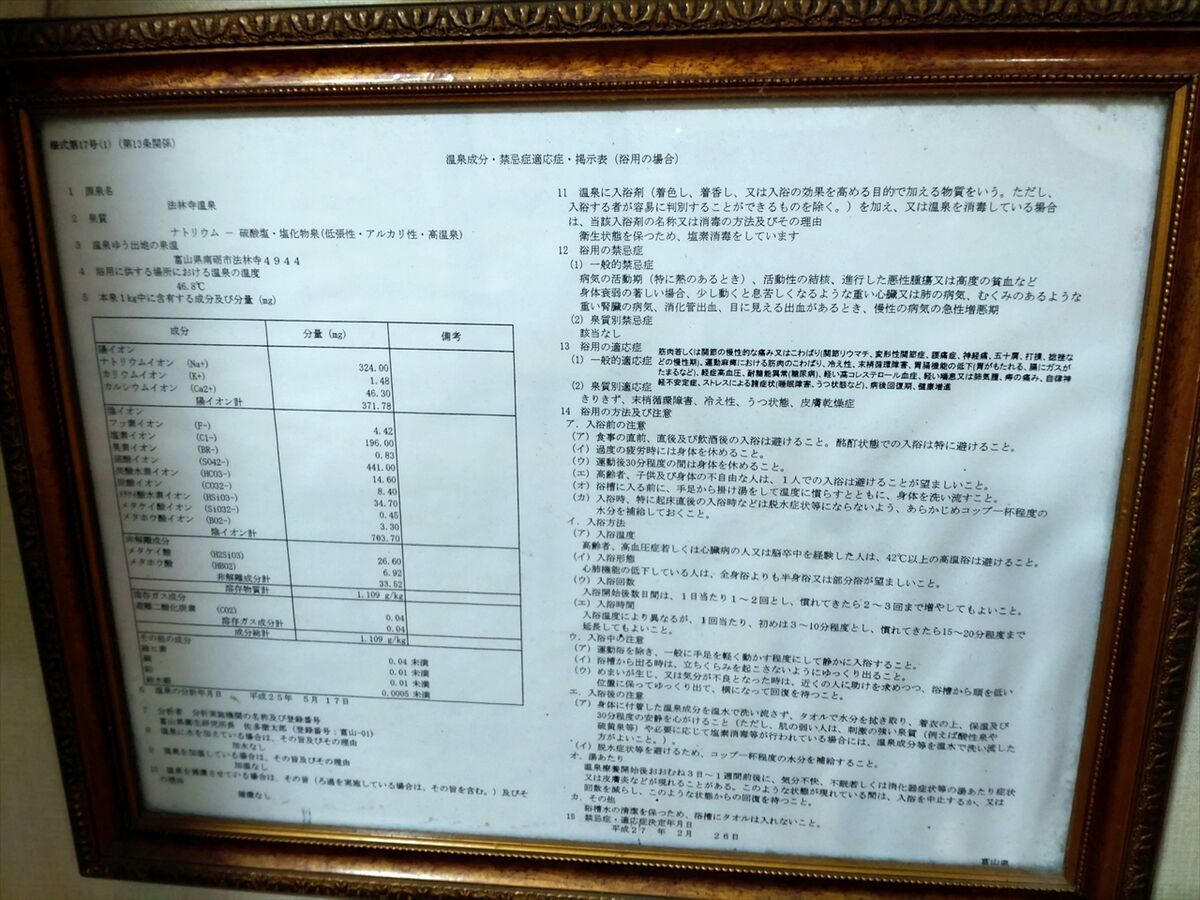 様式第17号(1) (第13条関係)
温泉成分・禁忌症適応症・掲示表(浴用の場合)
1 源泉名
法林寺温泉
2 泉質
ナトリウム − 硫酸塩・塩化物泉(低張性・アルカリ性・高温泉)
3 温泉ゆう出地の泉温
富山県南砺市法林寺4944
4 浴用に供する場所における温泉の温度
46.8℃
5 本泉1kg中に含有する成分及び分量(mg)
成分 分量(mg) 備考
陽イオン
ナトリウムイオン (Na+) 324.00
カリウムイオン (K+) 1.48
カルシウムイオン (Ca2+) 46.30
陽イオン計 371.78
陰イオン
フッ素イオン (F-) 4.42
塩素イオン (Cl-) 196.00
臭素イオン (BR-) 0.83
硫酸イオン (SO42-) 441.00
炭酸水素イオン (HCO3-) 14.60
炭酸イオン (CO32-) 8.40
メタケイ酸水素イオン (HSiO3-) 34.70
メタケイ酸イオン (SiO32-) 0.45
メタホウ酸イオン (BO2-) 3.30
陰イオン計 703.70
非解離成分
メタケイ酸 (H2SiO3) 26.60
メタホウ酸 (HBO2) 6.92
非解離成分計 33.52
溶存物質計 1.109 g/kg
溶存ガス成分
遊離二酸化炭素 (CO2) 0.04
溶存ガス成分計 0.04
成分総計 1.109 g/kg
その他の成分
総ヒ素 0.04 未満
銅 0.01 未満
鉛 0.01 未満
総水銀 0.0005 未満
6 温泉の分析年月日 平成25年 5月17日
7 分析者 分析実施機関の名称及び登録番号
富山県衛生研究所長 佐多徹太郎(登録番号:富山-01)
8 温泉に水を加えている場合は、その旨及びその理由
加水なし
9 温泉を加温している場合は、その旨及びその理由
加温なし
10 温泉を循環させている場合は、その旨(ろ過を実施している場合は、その旨を含む。)及びそ
の理由
循環なし
11 温泉に入浴剤(着色し、着香し、又は入浴の効果を高める目的で加える物質をいう。ただし、
入浴する者が容易に判別することができるものを除く。)を加え、又は温泉を消毒している場合
は、当該入浴剤の名称又は消毒の方法及びその理由
衛生状態を保つため、塩素消毒をしています
12 浴用の禁忌症
(1) 一般的禁忌症
病気の活動期(特に熱のあるとき)、活動性の結核、進行した悪性腫瘍又は高度の貧血など
身体衰弱の著しい場合、少し動くと息苦しくなるような重い心臓又は肺の病気、むくみのあるような
重い腎臓の病気、消化管出血、目に見える出血があるとき、慢性の病気の急性増悪期
(2) 泉質別禁忌症
該当なし
13 浴用の適応症
(1) 一般的適応症 筋肉若しくは関節の慢性的な痛み又はこわばり(関節リウマチ、変形性関節症、腰痛症、神経痛、五十肩、打撲、捻挫な
どの慢性期)、運動麻痺における筋肉のこわばり、冷え性、末梢循環障害、胃腸機能の低下(胃がもたれる、腸にガスが
たまるなど)、軽症高血圧、耐糖能異常(糖尿病)、軽い高コレステロール血症、軽い喘息又は肺気腫、痔の痛み、自律神
経不安定症、ストレスによる諸症状(睡眠障害、うつ状態など)、病後回復期、健康増進
(2) 泉質別適応症
きりきず、末梢循環障害、冷え性、うつ状態、皮膚乾燥症
14 浴用の方法及び注意
ア. 入浴前の注意
(ア) 食事の直前、直後及び飲酒後の入浴は避けること。酩酊状態での入浴は特に避けること。
(イ) 過度の疲労時には身体を休めること。
(ウ) 運動後30分程度の間は身体を休めること。
(エ) 高齢者、子供及び身体の不自由な人は、1人での入浴は避けることが望ましいこと。
(オ) 浴槽に入る前に、手足から掛け湯をして温度に慣らすとともに、身体を洗い流すこと。
(カ) 入浴時、特に起床直後の入浴時などは脱水症状等にならないよう、あらかじめコップ一杯程度の
水分を補給しておくこと。
イ. 入浴方法
(ア) 入浴温度
高齢者、高血圧症若しくは心臓病の人又は脳卒中を経験した人は、42℃以上の高温浴は避けること。
(イ) 入浴形態
心肺機能の低下している人は、全身浴よりも半身浴又は部分浴が望ましいこと。
(ウ) 入浴回数
入浴開始後数日間は、1日当たり1〜2回とし、慣れてきたら2〜3回まで増やしてもよいこと。
(エ) 入浴時間
入浴温度により異なるが、1回当たり、初めは3〜10分程度とし、慣れてきたら15〜20分程度まで
延長してもよいこと。
ウ. 入浴中の注意
(ア) 運動浴を除き、一般に手足を軽く動かす程度にして静かに入浴すること。
(イ) 浴槽から出る時は、立ちくらみを起こさないようにゆっくり出ること。
(ウ) めまいが生じ、又は気分が不良となった時は、近くの人に助けを求めつつ、浴槽から頭を低い
位置に保ってゆっくり出て、横になって回復を待つこと。
エ. 入浴後の注意
(ア) 身体に付着した温泉成分を温水で洗い流さず、タオルで水分を拭き取り、着衣の上、保温及び
30分程度の安静を心がけること(ただし、肌の弱い人は、刺激の強い泉質(例えば酸性泉や
硫黄泉等)や必要に応じて塩素消毒等が行われている場合には、温泉成分等を温水で洗い流した
方がよいこと。)。
(イ) 脱水症状等を避けるため、コップ一杯程度の水分を補給すること。
オ. 湯あたり
温泉療養開始後おおむね3日〜1週間前後に、気分不快、不眠若しくは消化器症状等の湯あたり症状
又は皮膚炎などが現れることがある。このような状態が現れている間は、入浴を中止するか、又は
回数を減らし、このような状態からの回復を待つこと。
カ. その他
浴槽水の清潔を保つため、浴槽にタオルは入れないこと。
15 禁忌症・適応症決定年月日
平成27年 2月 26日
富山県